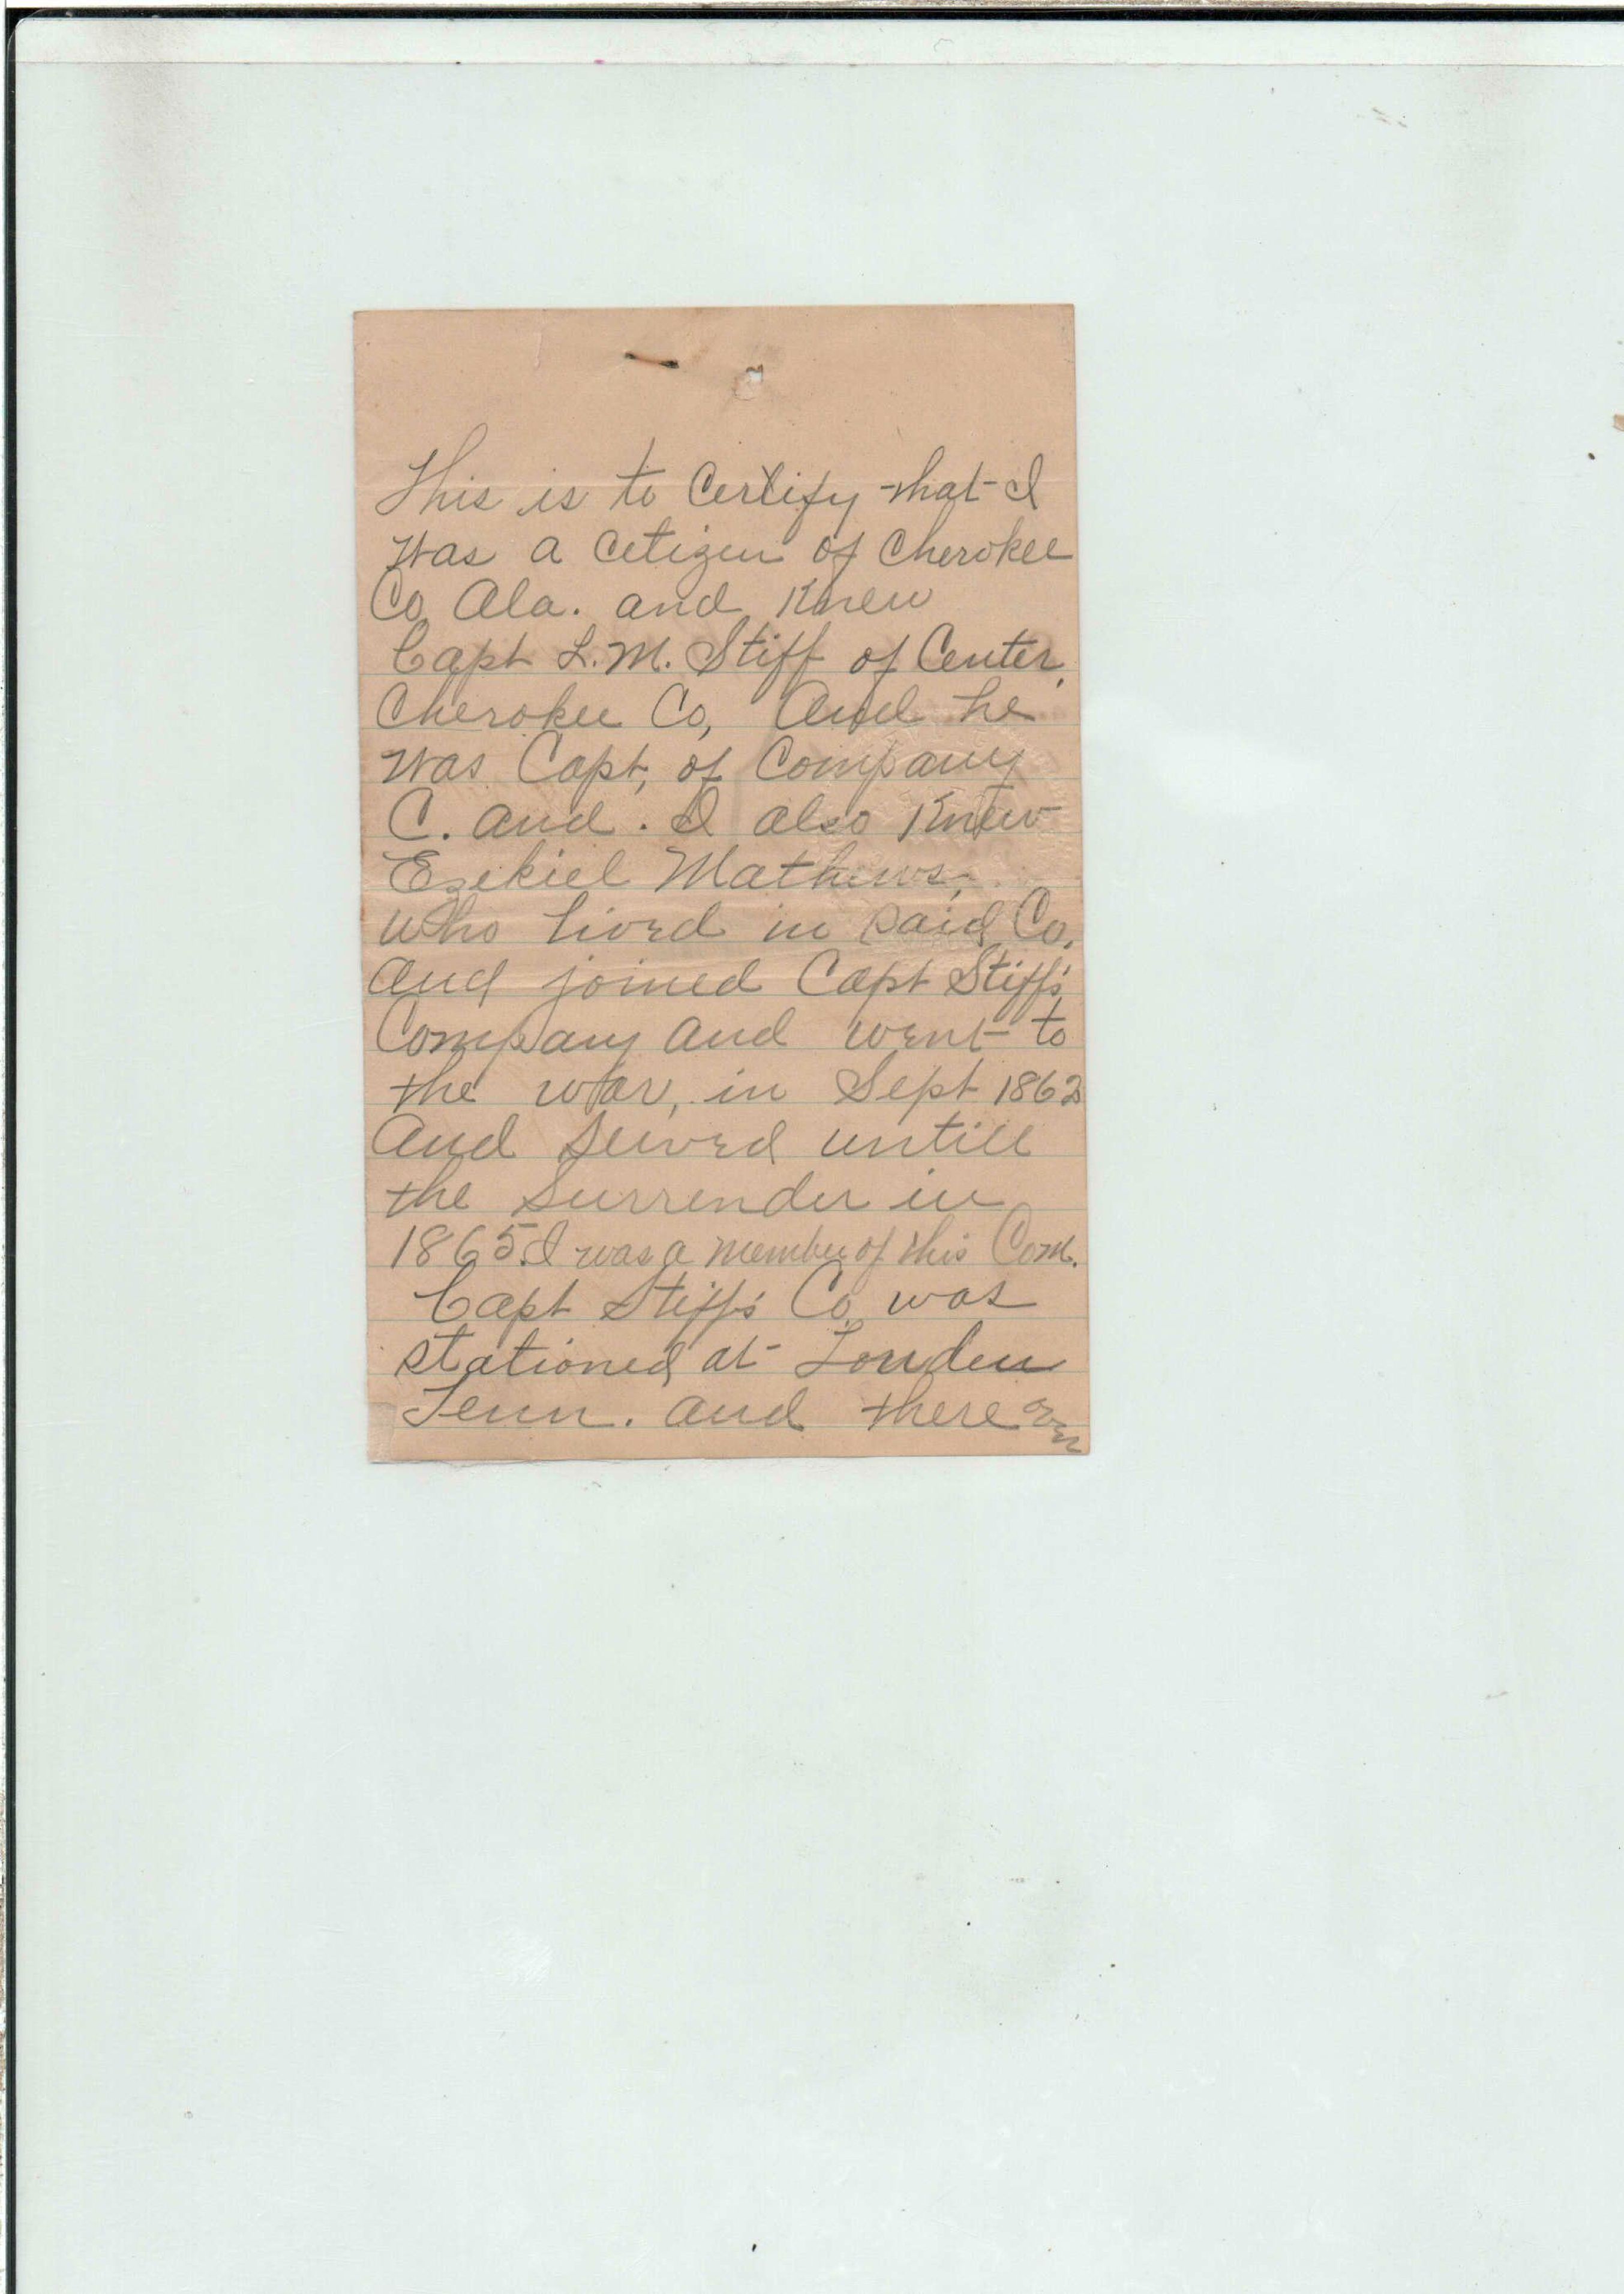 This is to Certify that I
was a Cetizen of Cherokee
Co Ala. and Knew
Capt L.M. Stiff of Center,
Cherokee Co, And he
was Capt, of Company
C. and. I also Knew
Ezekiel Mathews,
who lived in said Co,
and joined Capt Stiff's
Company and went to
the war, in Sept 1862
And served untill
the surrender in
1865. I was a member of this Com.
Capt Stiff's Co was
stationed at Louden
Tenn. and there